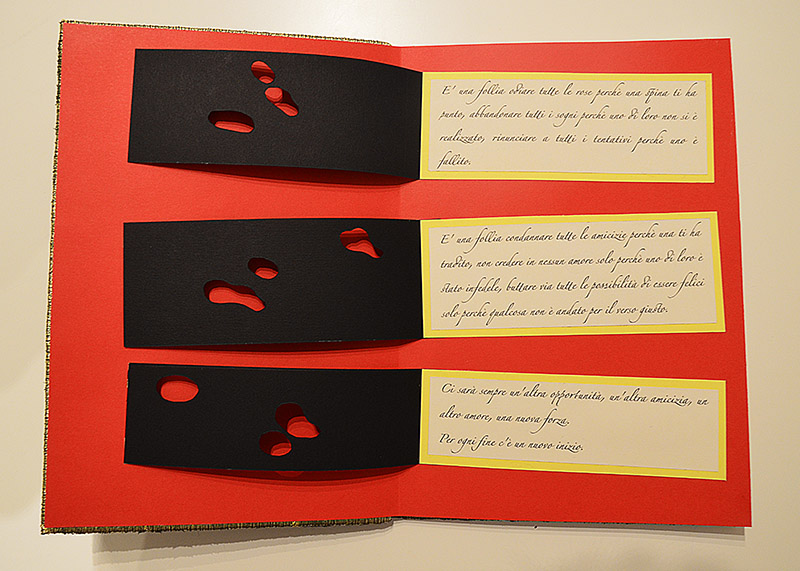 E' una follia odiare tutte le rose perché una spina ti ha
punto, abbandonare tutti i sogni perché uno di loro non si è
realizzato, rinunciare a tutti i tentativi perché uno è
fallito.
E' una follia condannare tutte le amicizie perché una ti ha
tradito, non credere in nessun amore solo perché uno di loro è
stato infedele, buttare via tutte le possibilità di essere felici
solo perché qualcosa non è andato per il verso giusto.
Ci sarà sempre un'altra opportunità, un'altra amicizia, un
altro amore, una nuova forza.
Per ogni fine c'è un nuovo inizio.